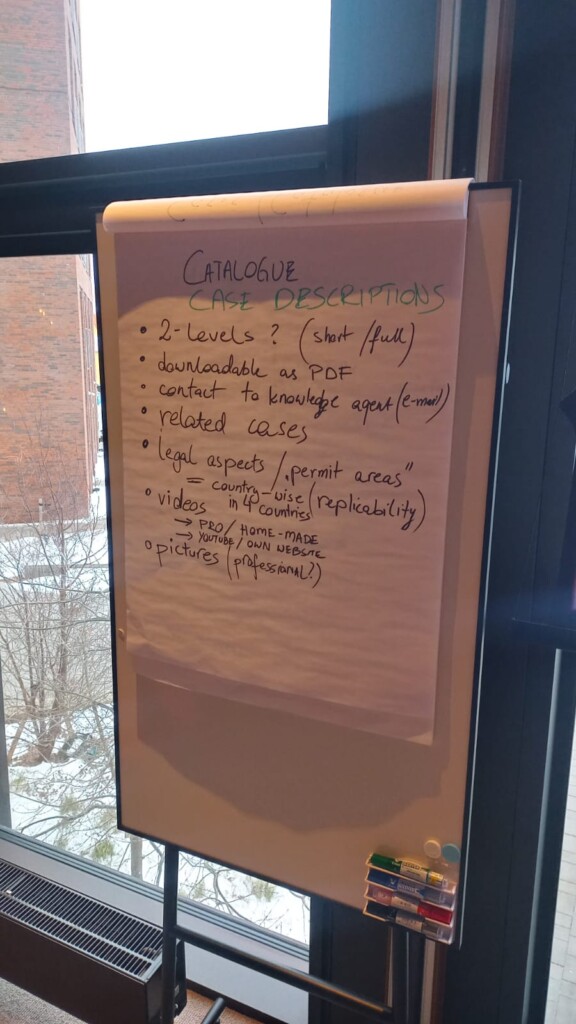 CATALOGUE
CASE DESCRIPTIONS
• 2-Levels ? (short / full)
• downloadable as PDF
• contact to knowledge agent (e-mail)
• related cases
• legal aspects / „permit areas"
= country-wise (replicability)
• videos in 4 countries
→ PRO / HOME-MADE
→ YOUTUBE / OWN WEBSITE
• pictures (professional?)